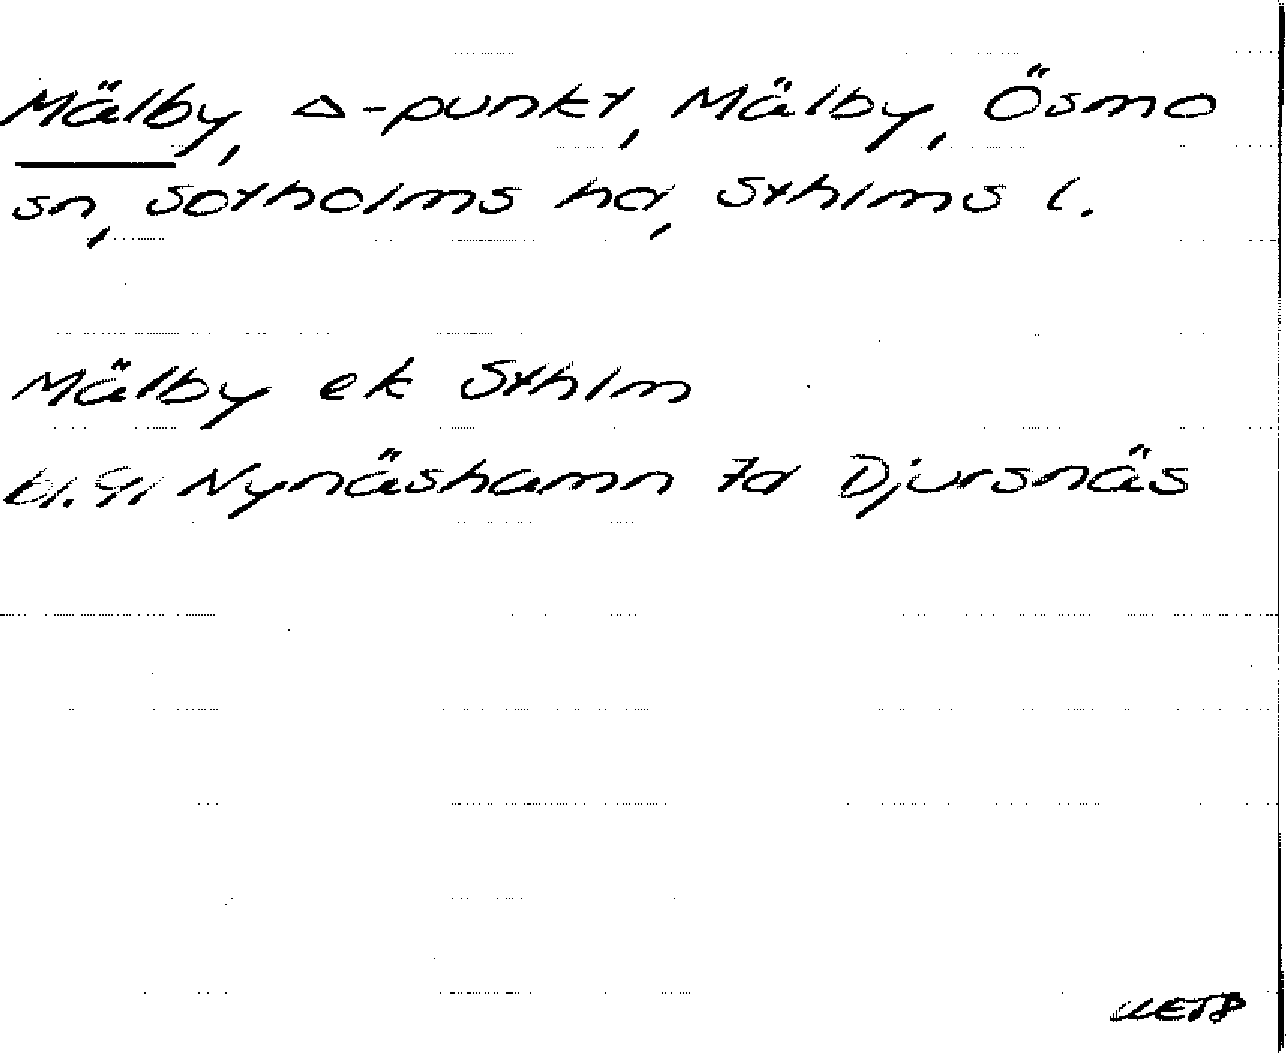 Mälby, Δ-punkt, Mälby, Ösmo
sn, Sotholms hd, Sthlms l.
Mälby ek Sthlm
bl. 91 Nynäshamn 7d Djursnäs